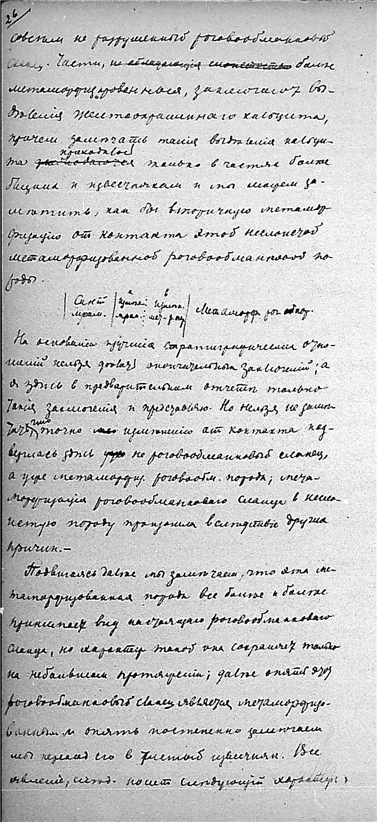 26
совсѣмъ не разрушенный роговообманковый
сланец. Части, не обладающія слоистостью болѣе
метаморфизированныя, заключаютъ вы-
дѣленія желтоокрашеннаго кальцита,
причемъ замѣчать такія выдѣленія кальци-
та приходилось только въ частяхъ болѣе
близкихъ к известнякам и мы можем за-
мѣтить, как бы вторичную метамор-
физацию от контакта этой неслоистой
метаморфизованной роговообманковой по-
роды.
Метаморф. рог. обман.
На основании изученія стратиграфических отно-
шеній нельзя делать окончательных заключеній; а
я здѣсь в предварительном отчетѣ только
такія заключенія и представляю. Но нельзя не замѣ-
точно измѣненію от контакта под-
верглась здѣсь не роговообманковый сланец,
а уже метаморфиз. роговообм. порода; мета-
морфизація роговообманковаго сланца в несло-
истую породу произошла вслѣдствіе других
причин.—
Подвигаясь далѣе мы замѣчаем, что эта ме-
таморфизованная порода все болѣе и болѣе
принимает вид настоящаго роговообманковаго
сланца, но характер такой она сохраняет только
на небольшом протяжении; далѣе опять этот
роговообманковый сланец является метаморфизо-
ванным и опять постепенно замѣчаем
мы переход его в чистый известняк. Все
явленіе, носит слѣдующій характеръ,